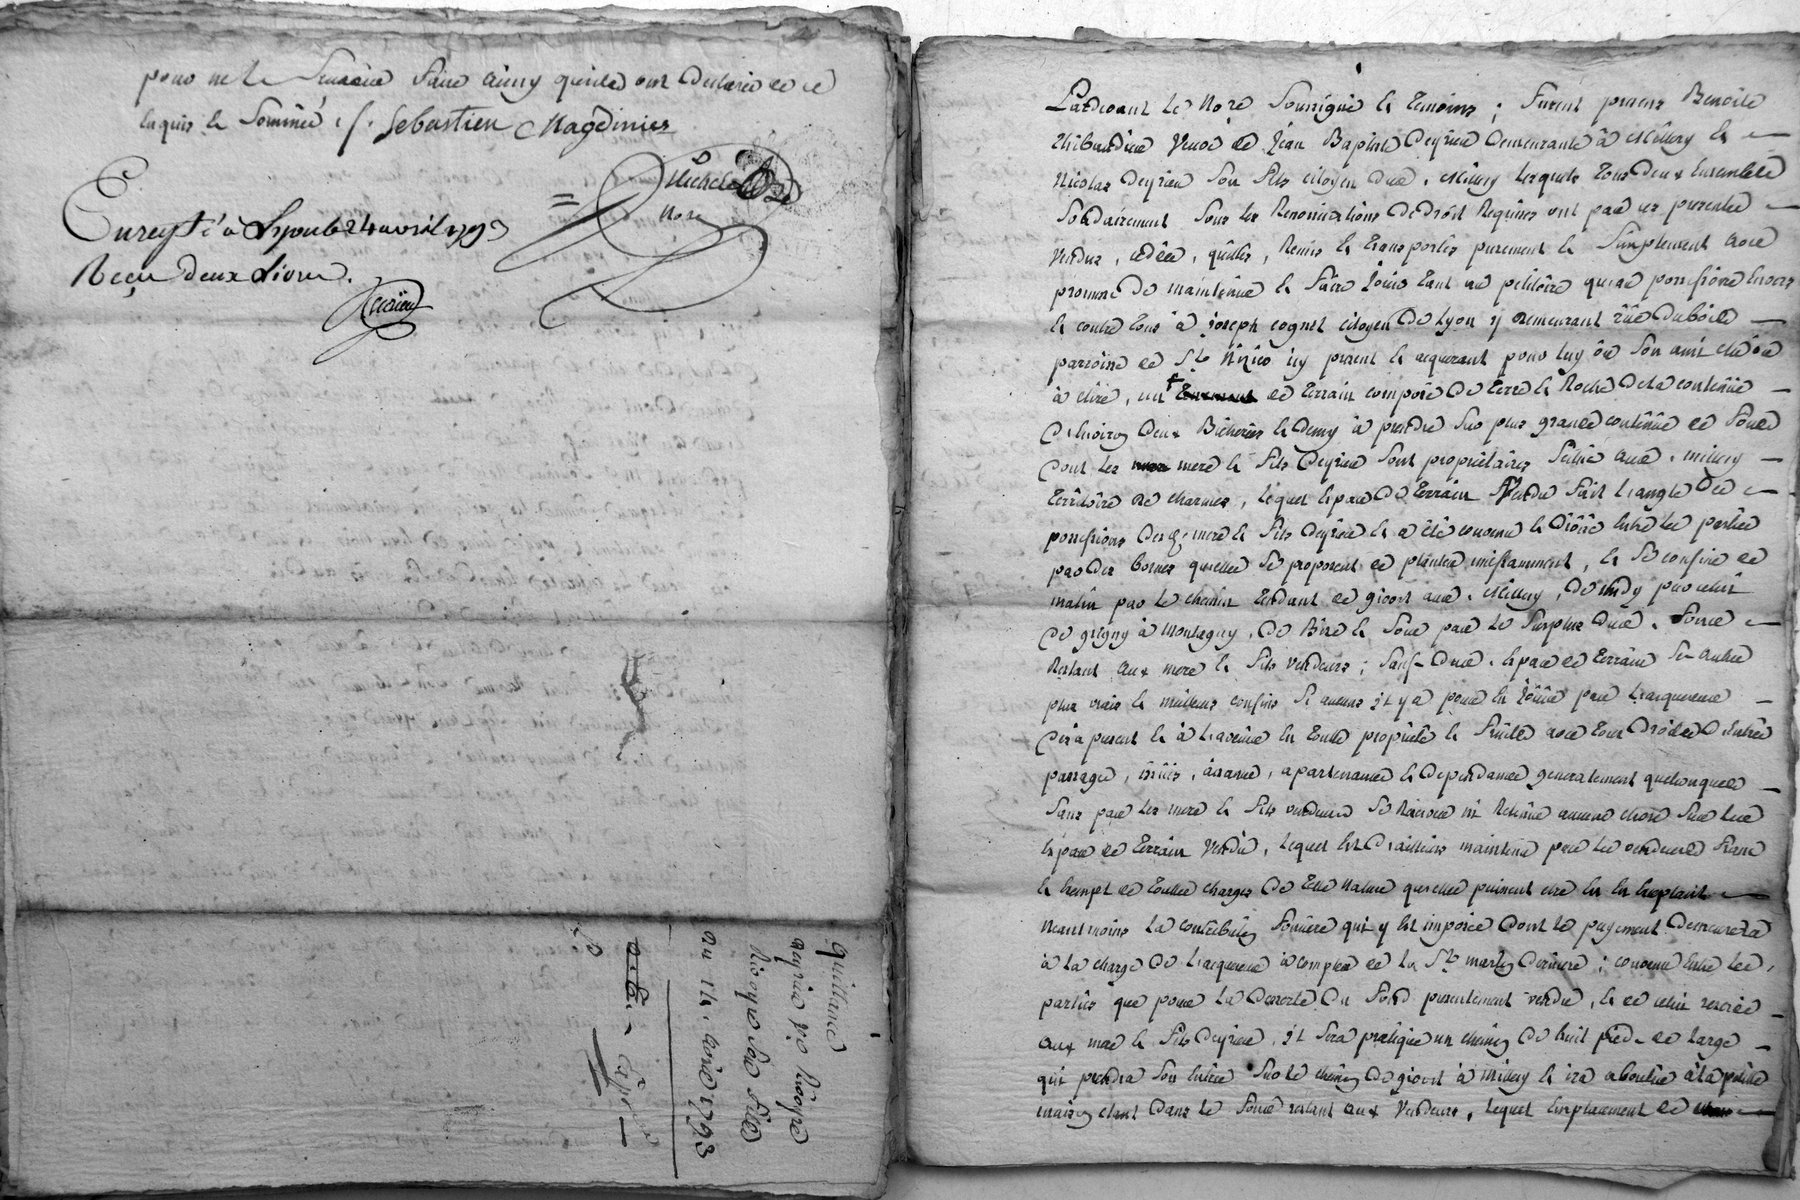 pour ne le Scavoir faire ainsy quils ont declaré de ce
enquis & Sommé, /. Sebastien Magdinier
Michel
Nore
Enregté à Lyon le 24 avril 1793
Reçu deux Livres.
quittance
à deyrieu
au 14. avril 1793
Pardevant le Nore Soussigné & temoins ; furent presens Benoite
Thibaudier veuve de Jean Baptiste Deyrieu demeurante à Millery &
Nicolas Deyrieu son fils citoyen dud. Millery lesquels tous deux ensemble
Solidairement sous les Renonciations de droit Requises ont par ces presentes
vendus, cédés, quittés, Remis & transportés purement & simplement avec
promesse de maintenue & faire jouir tant au petitoire qu'au possessoire envers
& contre tous à joseph cognet citoyen de Lyon y demeurant rüe dubois
parroisse de St. Nizier icy present & acquerant pour luy ou son ami elu ou
à elire, un de terrain composé de terre & Roche de la contenüe
d'environ deux Bicherées & demy à prendre sur plus grande contenüe de fonds
dont les mere & fils Deyrieu sont propriétaires scitüé aud. millery
territoire de charnes, lequel espace de terrain vendu fait l'angle des
possessions desd. mere & fils Deyrieu & a été convenu & divisé entre les parties
par des bornes qu'elles se proposent de planter incessamment, & se confine de
matin par le chemin tendant de givors aud. Millery, de midy par celuy
de grigny à Montagny, de Bize & soir par le surplus dud. fonds
Restant aux mere & fils vendeurs ; sauf dud. espace de terrain ses autres
plus vrais & meilleurs confins si aucuns il y a pour en joüir par l'acquereur
dès à present & à l'avenir en toute propriété & fruits avec tous droits d'entrée
passages, issües, aisances, apartenances & dependances generalement quelconques
Sans par les mere & fils vendeurs se Réserver ni Retenir aucune chose sur led.
espace de terrain vendu, lequel est d'ailleurs maintenu par les vendeurs franc
& exempt de toutes charges de telle nature quelles puissent etre en en exceptant
Neantmoins la contribution fonciere qui y est imposée dont le payement demeurera
à la charge de l'acquereur à compter de la St. martin derniere ; convenu entre les
parties que pour la deserte du fond presentement vendu, & de celui reservé
aux mere & fils Deyrieu, il sera pratiqué un chemin de huit pieds de large
qui prendra son entrée sur le chemin de givors à Millery & ira aboutir à la petite
maison etant dans le fonds restant aux vendeurs, lequel emplacement de